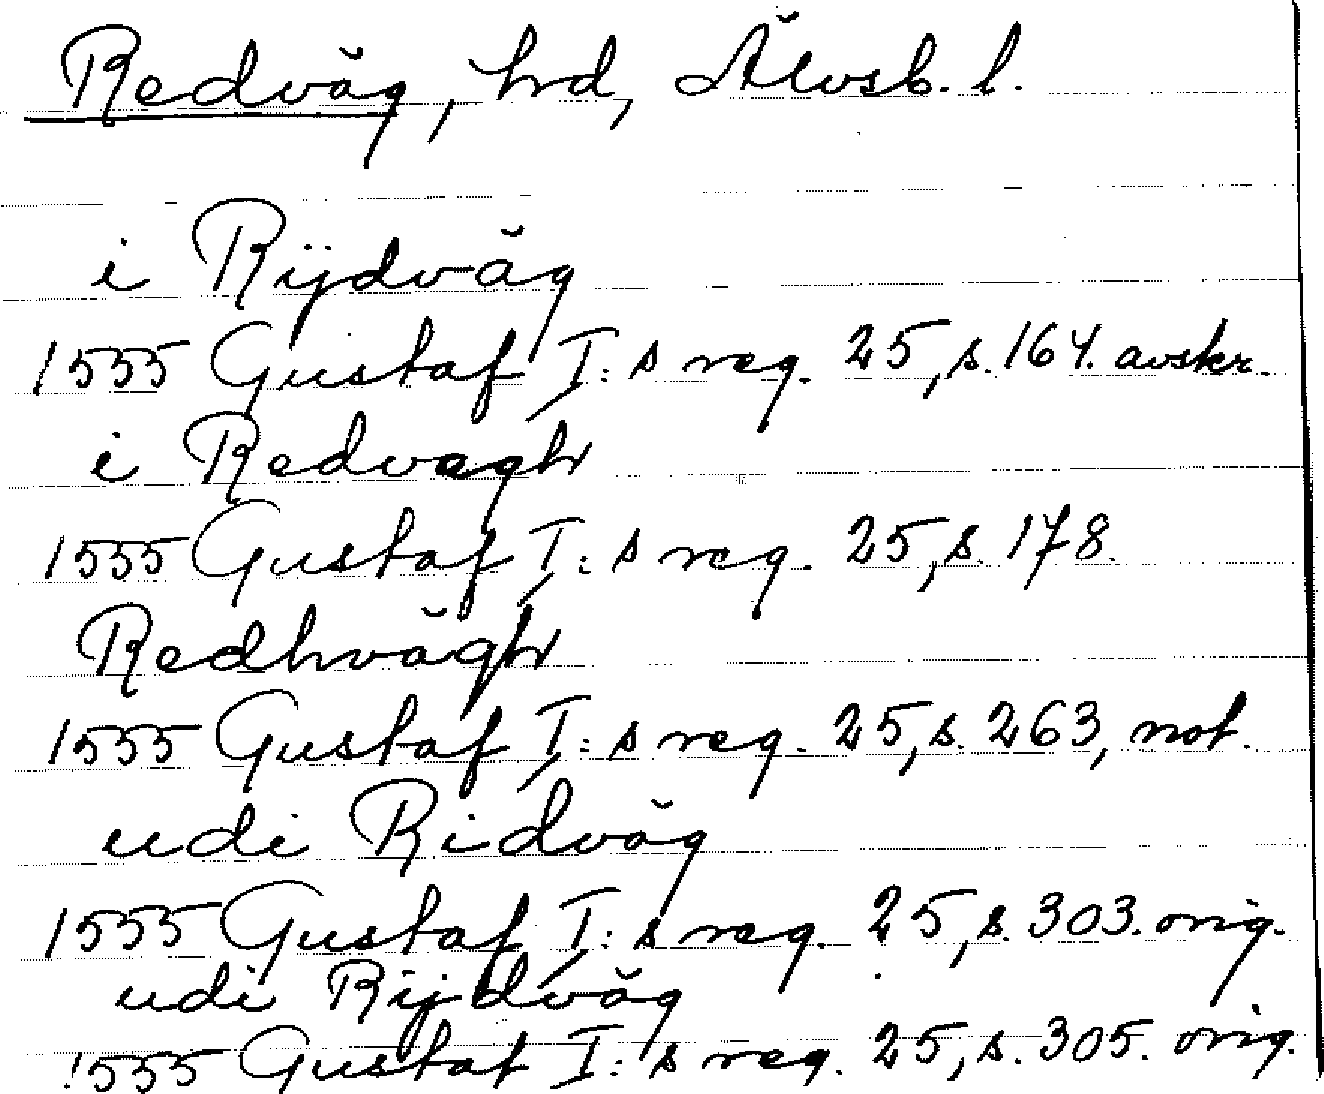 Redväg, hrd, Älvsb. l.
i Rijdväg
1555 Gustaf I:s reg. 25, s. 164. avskr.
i Redvegh
1555 Gustaf I:s reg. 25, s. 178.
Redhvägh
1555 Gustaf I:s reg. 25, s. 263, not.
udi Ridväg
1555 Gustaf I:s reg. 25, s. 303. orig.
udi Rijdväg
1555 Gustaf I:s reg. 25, s. 305. orig.